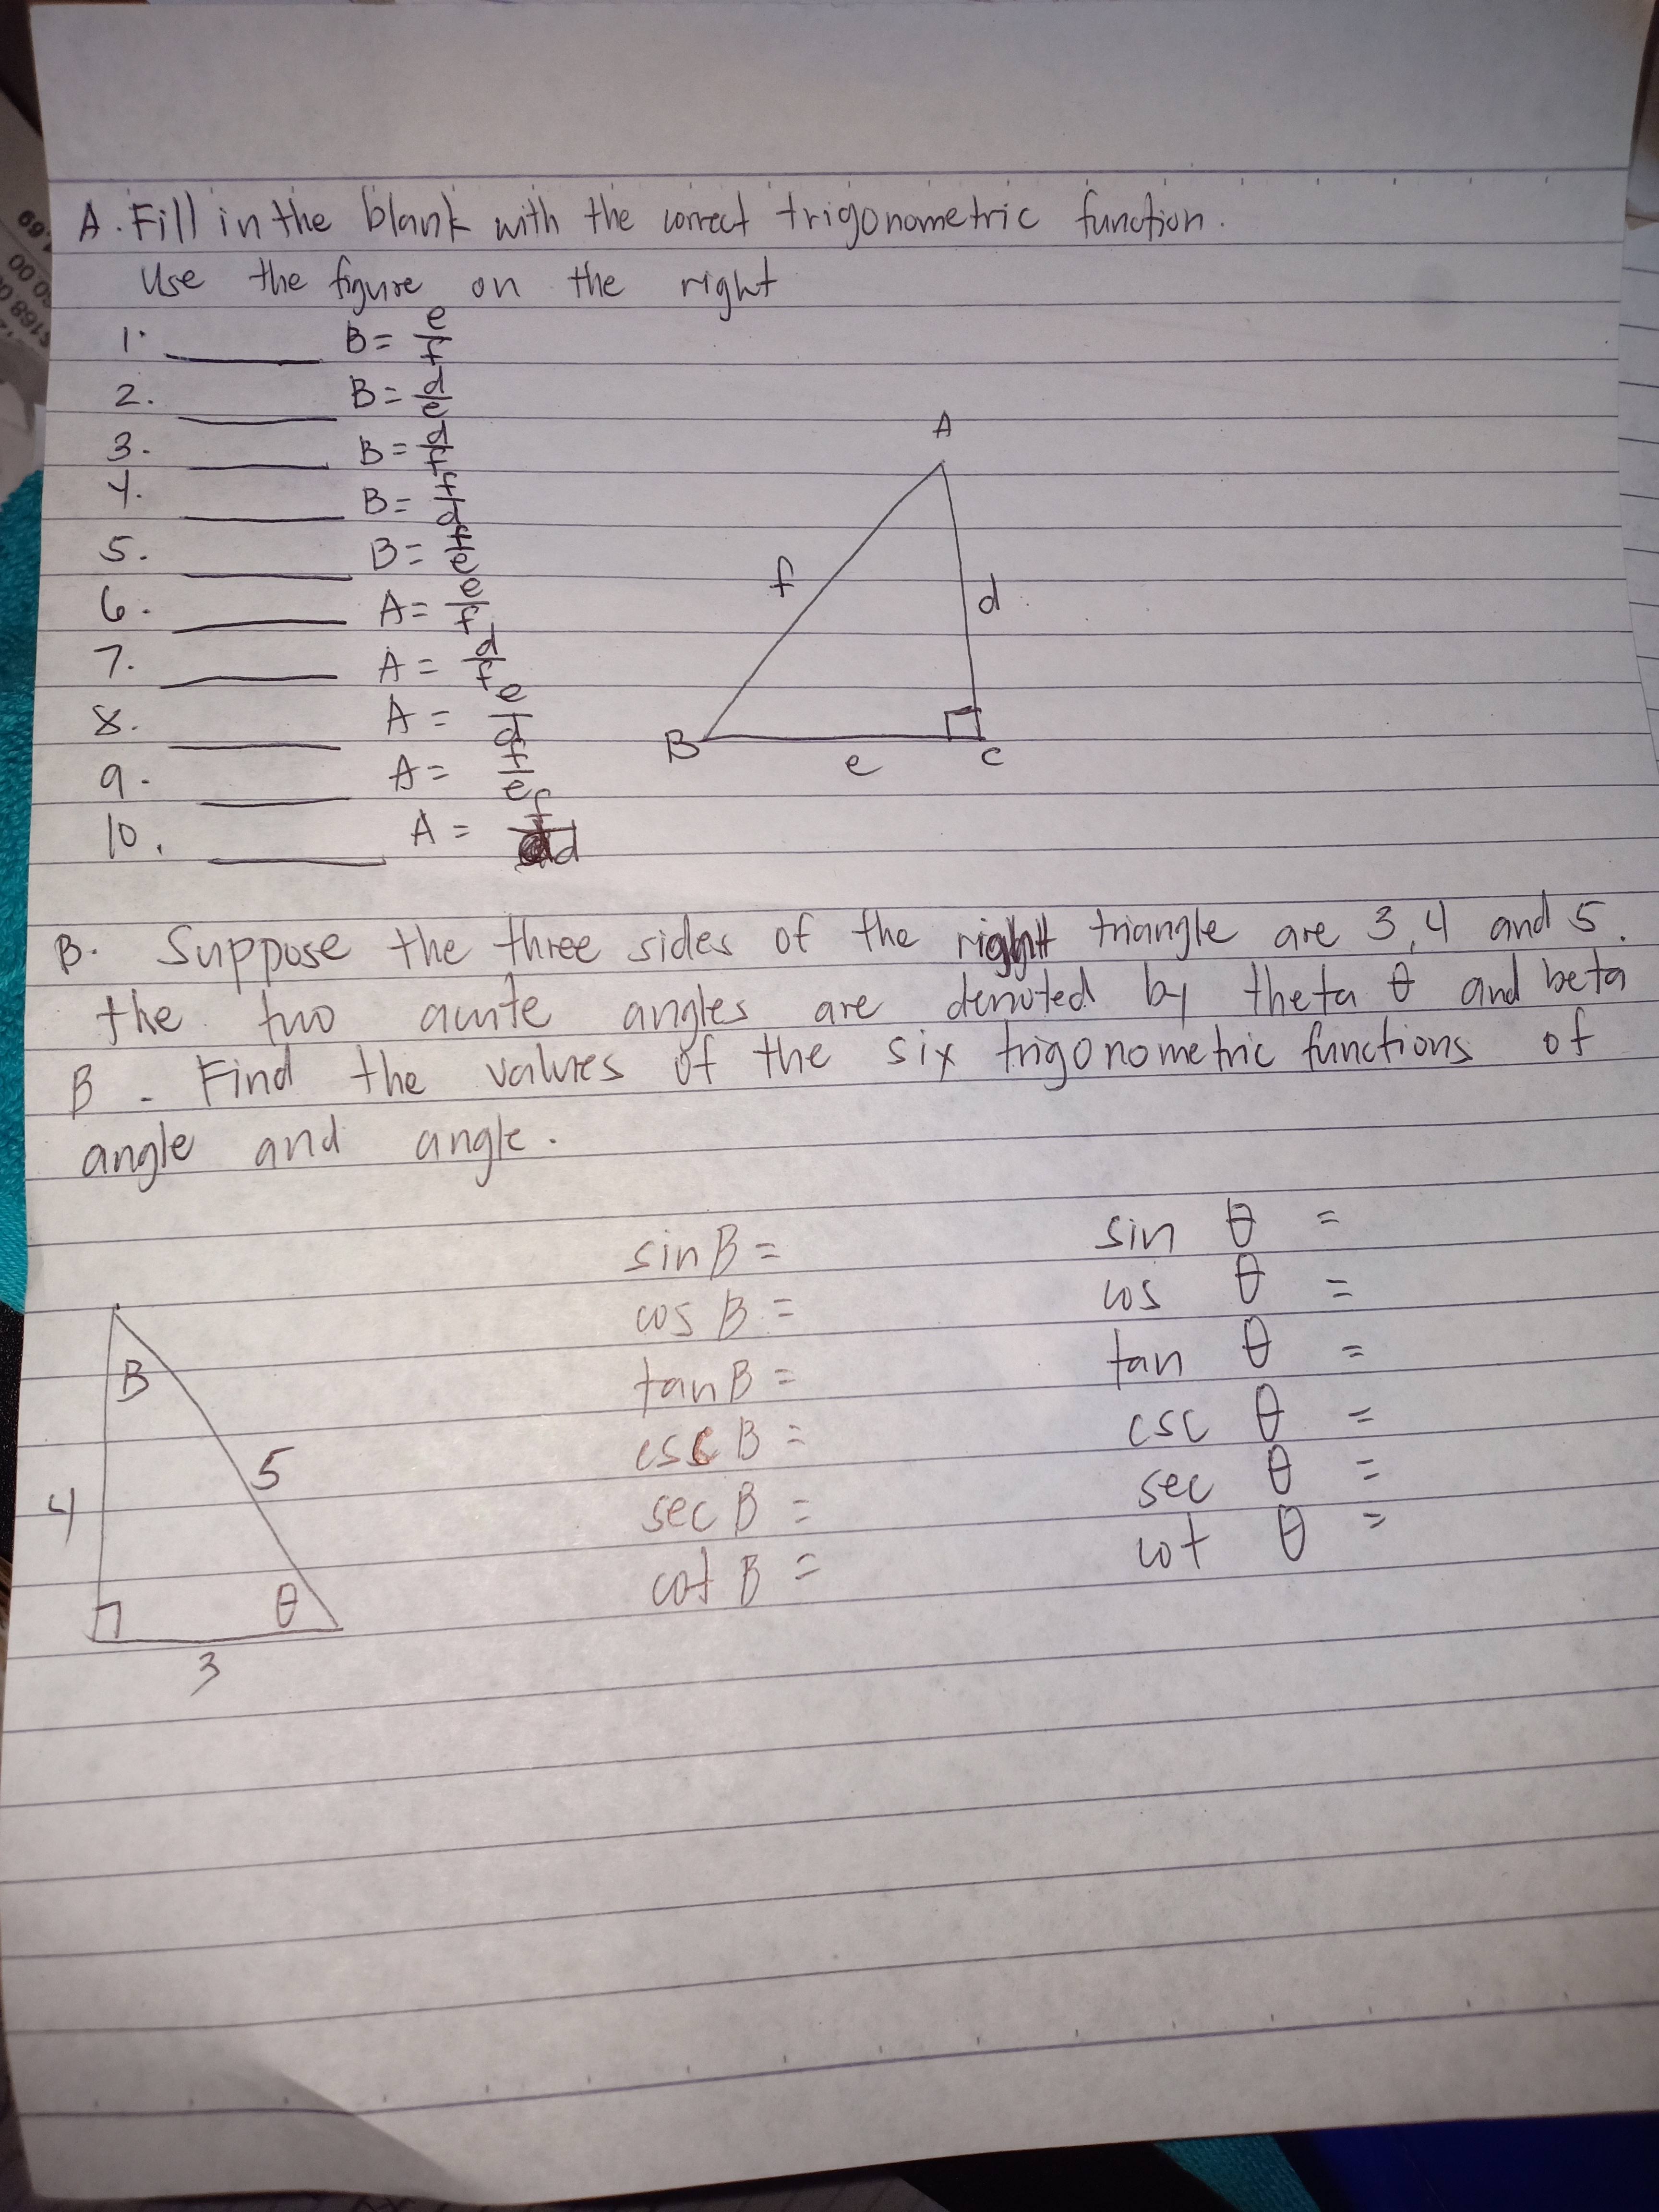 A. Fill in the blank with the correct trigonometric function.
Use the figure on the right
1. ______ B = e/f
2. ______ B = d/e
3. ______ B = d/f
4. ______ B = f/d
5. ______ B = f/e
6. ______ A = e/f
7. ______ A = d/f
8. ______ A = e/d
9. ______ A = f/e
10. ______ A = f/d
A
f
d
B
e
C
B. Suppose the three sides of the right triangle are 3, 4 and 5.
the two acute angles are denoted by theta θ and beta
B. Find the values of the six trigonometric functions of
angle and angle.
B
4
5
θ
3
sin B =
cos B =
tan B =
csc B =
sec B =
cot B =
sin θ =
cos θ =
tan θ =
csc θ =
sec θ =
cot θ =